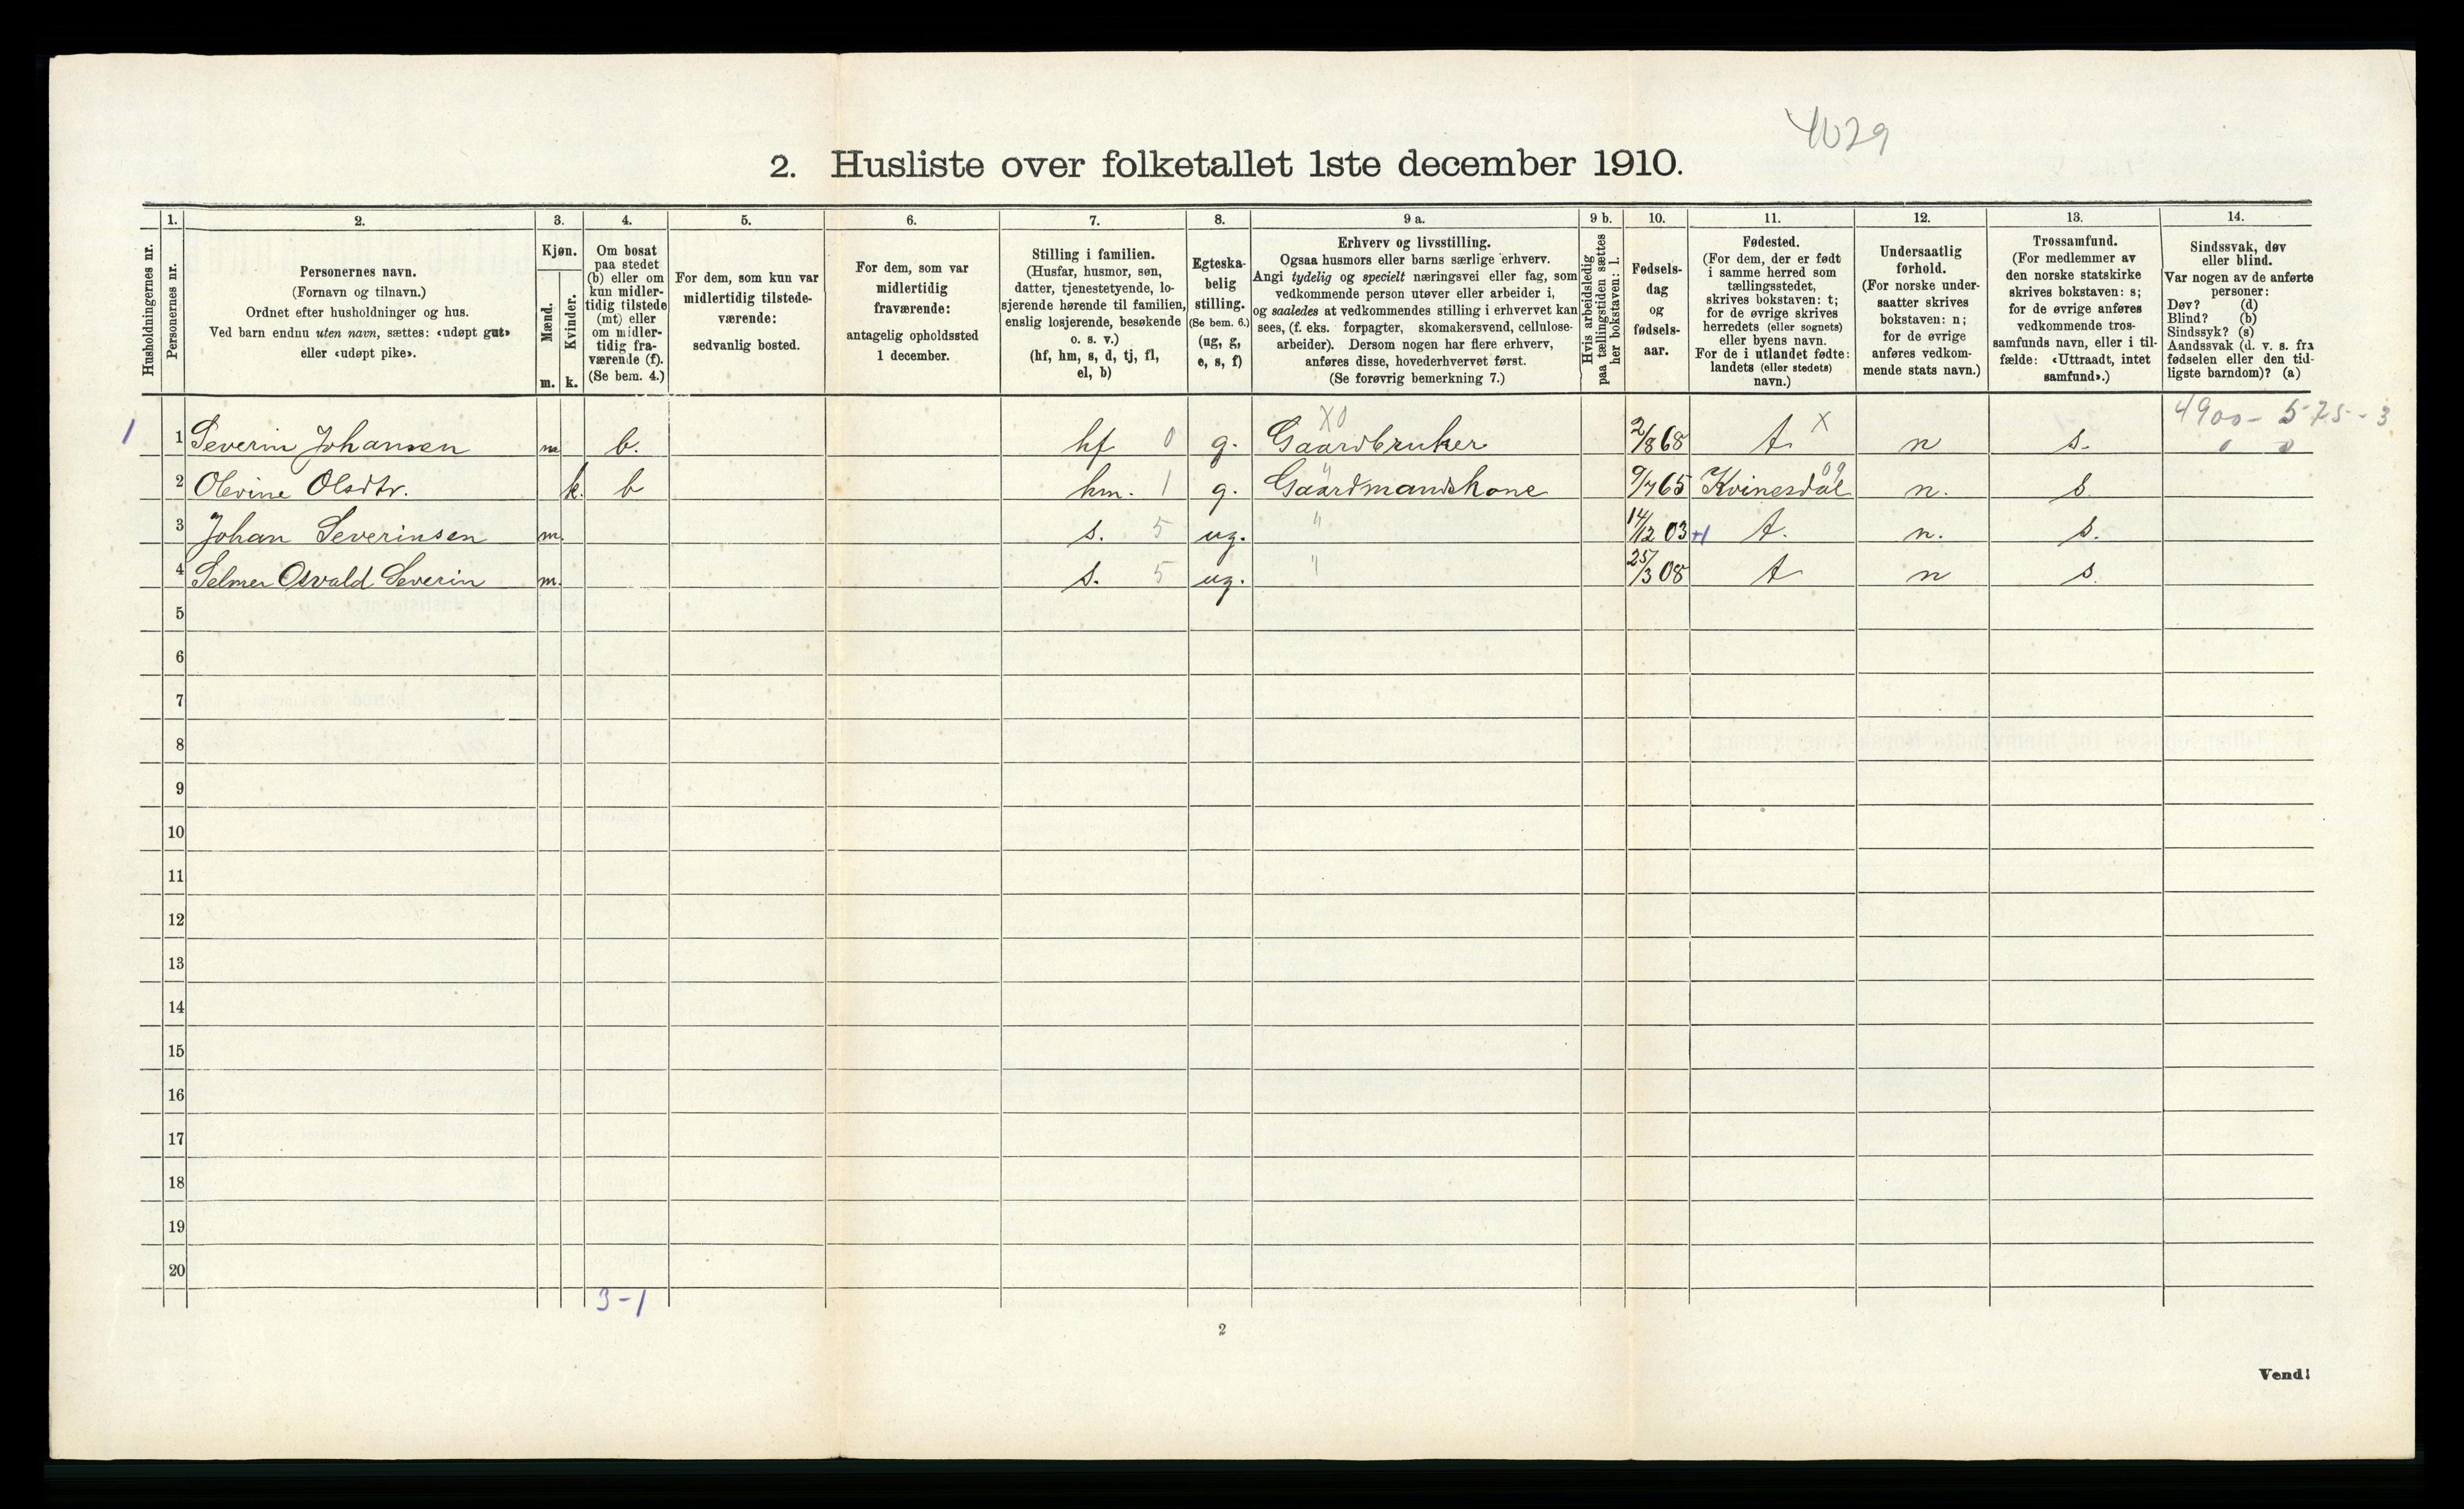 4029
2. Husliste over folketallet 1ste december 1910.
Husholdningernes nr.
1.
Personernes nr.
2.
Personernes navn.
(Fornavn og tilnavn.)
Ordnet efter husholdninger og hus.
Ved barn endnu uten navn, sættes: «udøpt gut»
eller «udøpt pike».
3.
Kjøn.
Mænd.
Kvinder.
m.
k.
4.
Om bosat
paa stedet
(b) eller om
kun midler-
tidig tilstede
(mt) eller
om midler-
tidig fra-
værende (f).
(Se bem. 4.)
5.
For dem, som kun var
midlertidig tilstede-
værende:
sedvanlig bosted.
6.
For dem, som var
midlertidig
fraværende:
antagelig opholdssted
1 december.
7.
Stilling i familien.
(Husfar, husmor, søn,
datter, tjenestetyende, lo-
sjerende hørende til familien,
enslig losjerende, besøkende
o. s. v.)
(hf, hm, s, d, tj, fl,
el, b)
8.
Egteska-
belig
stilling.
(Se bem. 6.)
(ug, g,
e, s, f)
9 a.
Erhverv og livsstilling.
Ogsaa husmors eller barns særlige erhverv.
Angi tydelig og specielt næringsvei eller fag, som
vedkommende person utøver eller arbeider i,
og saaledes at vedkommendes stilling i erhvervet kan
sees, (f. eks. forpagter, skomakersvend, cellulose-
arbeider). Dersom nogen har flere erhverv,
anføres disse, hovederhvervet først.
(Se forøvrig bemerkning 7.)
9 b.
Hvis arbeidsledig
paa tællingstiden sættes
her bokstaven: l.
10.
Fødsels-
dag
og
fødsels-
aar.
11.
Fødested.
(For dem, der er født
i samme herred som
tællingsstedet,
skrives bokstaven: t;
for de øvrige skrives
herredets (eller sognets)
eller byens navn.
For de i utlandet fødte:
landets (eller stedets)
navn.)
12.
Undersaatlig
forhold.
(For norske under-
saatter skrives
bokstaven: n;
for de øvrige
anføres vedkom-
mende stats navn.)
13.
Trossamfund.
(For medlemmer av
den norske statskirke
skrives bokstaven: s;
for de øvrige anføres
vedkommende tros-
samfunds navn, eller i til-
fælde: «Uttraadt, intet
samfund».)
14.
Sindssvak, døv
eller blind.
Var nogen av de anførte
personer:
Døv? (d)
Blind? (b)
Sindssyk? (s)
Aandssvak (d. v. s. fra
fødselen eller den tid-
ligste barndom)? (a)
X0 X 4900 - 575 - 3
1 1 Severin Johansen m b. hf 0 g. Gaardbruker 2/8 68 t. n s. 0 0
2 Olevine Olsdtr. k. b hm. 1 g. " Gaardmandskone 9/7 65 Kvinesdal 09 n. s.
3 Johan Severinsen m. s. 5 ug. " 14/12 03 +1 t. n. s.
4 Selmer Osvald Severin m. s. 5 ug. " 25/3 08 t n s.
5
6
7
8
9
10
11
12
13
14
15
16
17
18
19
20
3-1
2
Vend!